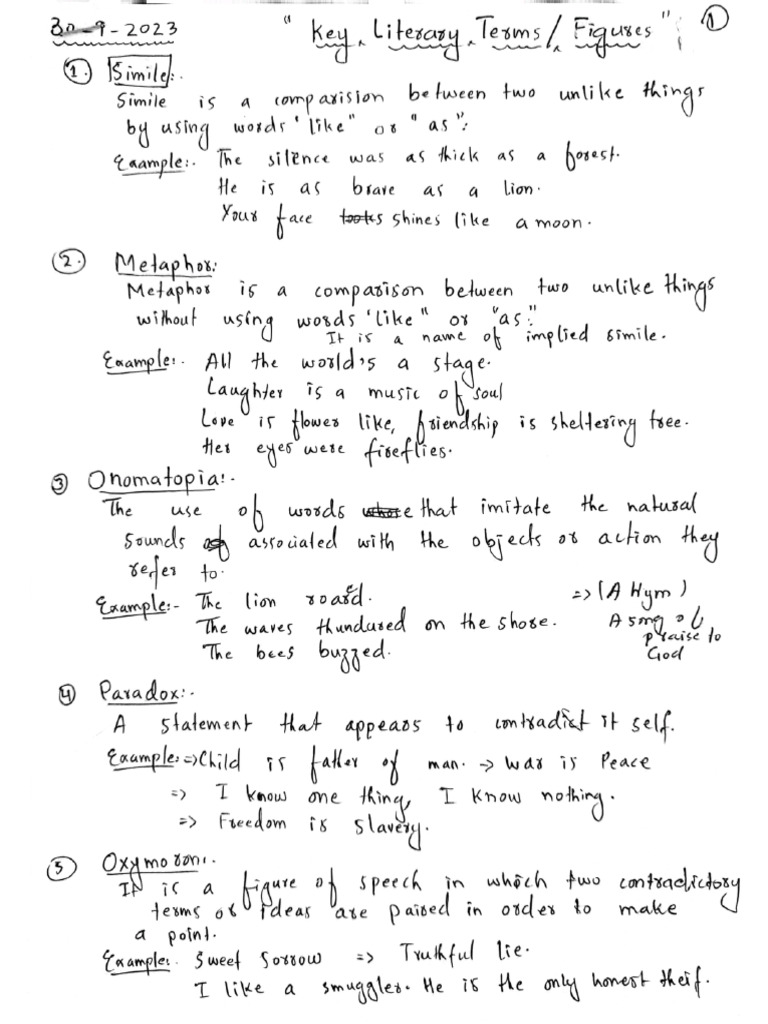 30-9-2023 " Key Literary Terms / Figures " ; 1
1. Simile:-
Simile is a comparision between two unlike things
by using words 'like" or "as":
Example:- The silence was as thick as a forest.
He is as brave as a lion.
Your face looks shines like a moon.
2. Metaphor:
Metaphor is a comparison between two unlike things
without using words 'like" or "as:"
It is a name of implied simile.
Example:- All the world's a stage.
Laughter is a music of soul
Love is flower like, friendship is sheltering tree.
Her eyes were fireflies.
3 Onomatopia:-
The use of words that imitate the natural
sounds associated with the objects or action they
refer to.
Example:- The lion roared. => (A Hym)
The waves thundured on the shore. A song of
praise to
The bees buzzed. God
4 Paradox:-
A statement that appears to contradict it self.
Example:=> Child is father of man. -> War is Peace
=> I know one thing, I know nothing.
=> Freedom is slavery.
5 Oxymoron:-
It is a figure of speech in which two contradictory
terms or ideas are paired in order to make
a point.
Example: Sweet Sorrow => Truthful lie.
I like a smuggler. He is the only honest theif.